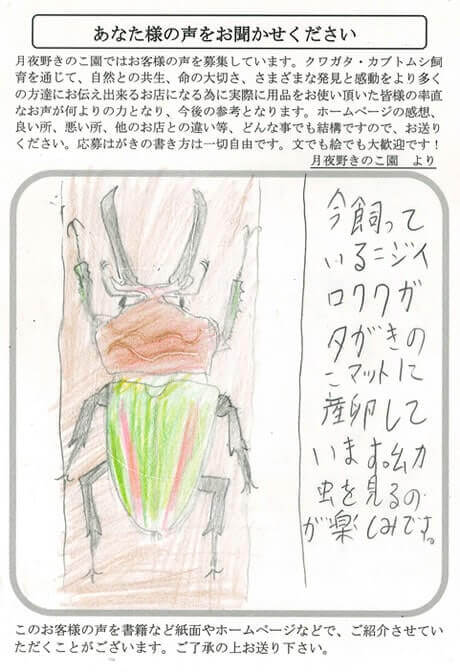 あなた様の声をお聞かせください
月夜野きのこ園ではお客様の声を募集しています。クワガタ・カブトムシ飼
育を通じて、自然との共生、命の大切さ、さまざまな発見と感動をより多く
の方達にお伝え出来るお店になる為に実際に用品をお使い頂いた皆様の率直
なお声が何よりの力となり、今後の参考となります。ホームページの感想、
良い所、悪い所、他のお店との違い等、どんな事でも結構ですので、お送り
ください。応募はがきの書き方は一切自由です。文でも絵でも大歓迎です！
月夜野きのこ園　より
今飼って
いるニジイ
ロクワガ
タがきの
こマットに
産卵して
います。幼
虫を見るの
が楽しみです。
このお客様の声を書籍など紙面やホームページなどで、ご紹介させてい
ただくことがございます。ご了承の上お送り下さい。